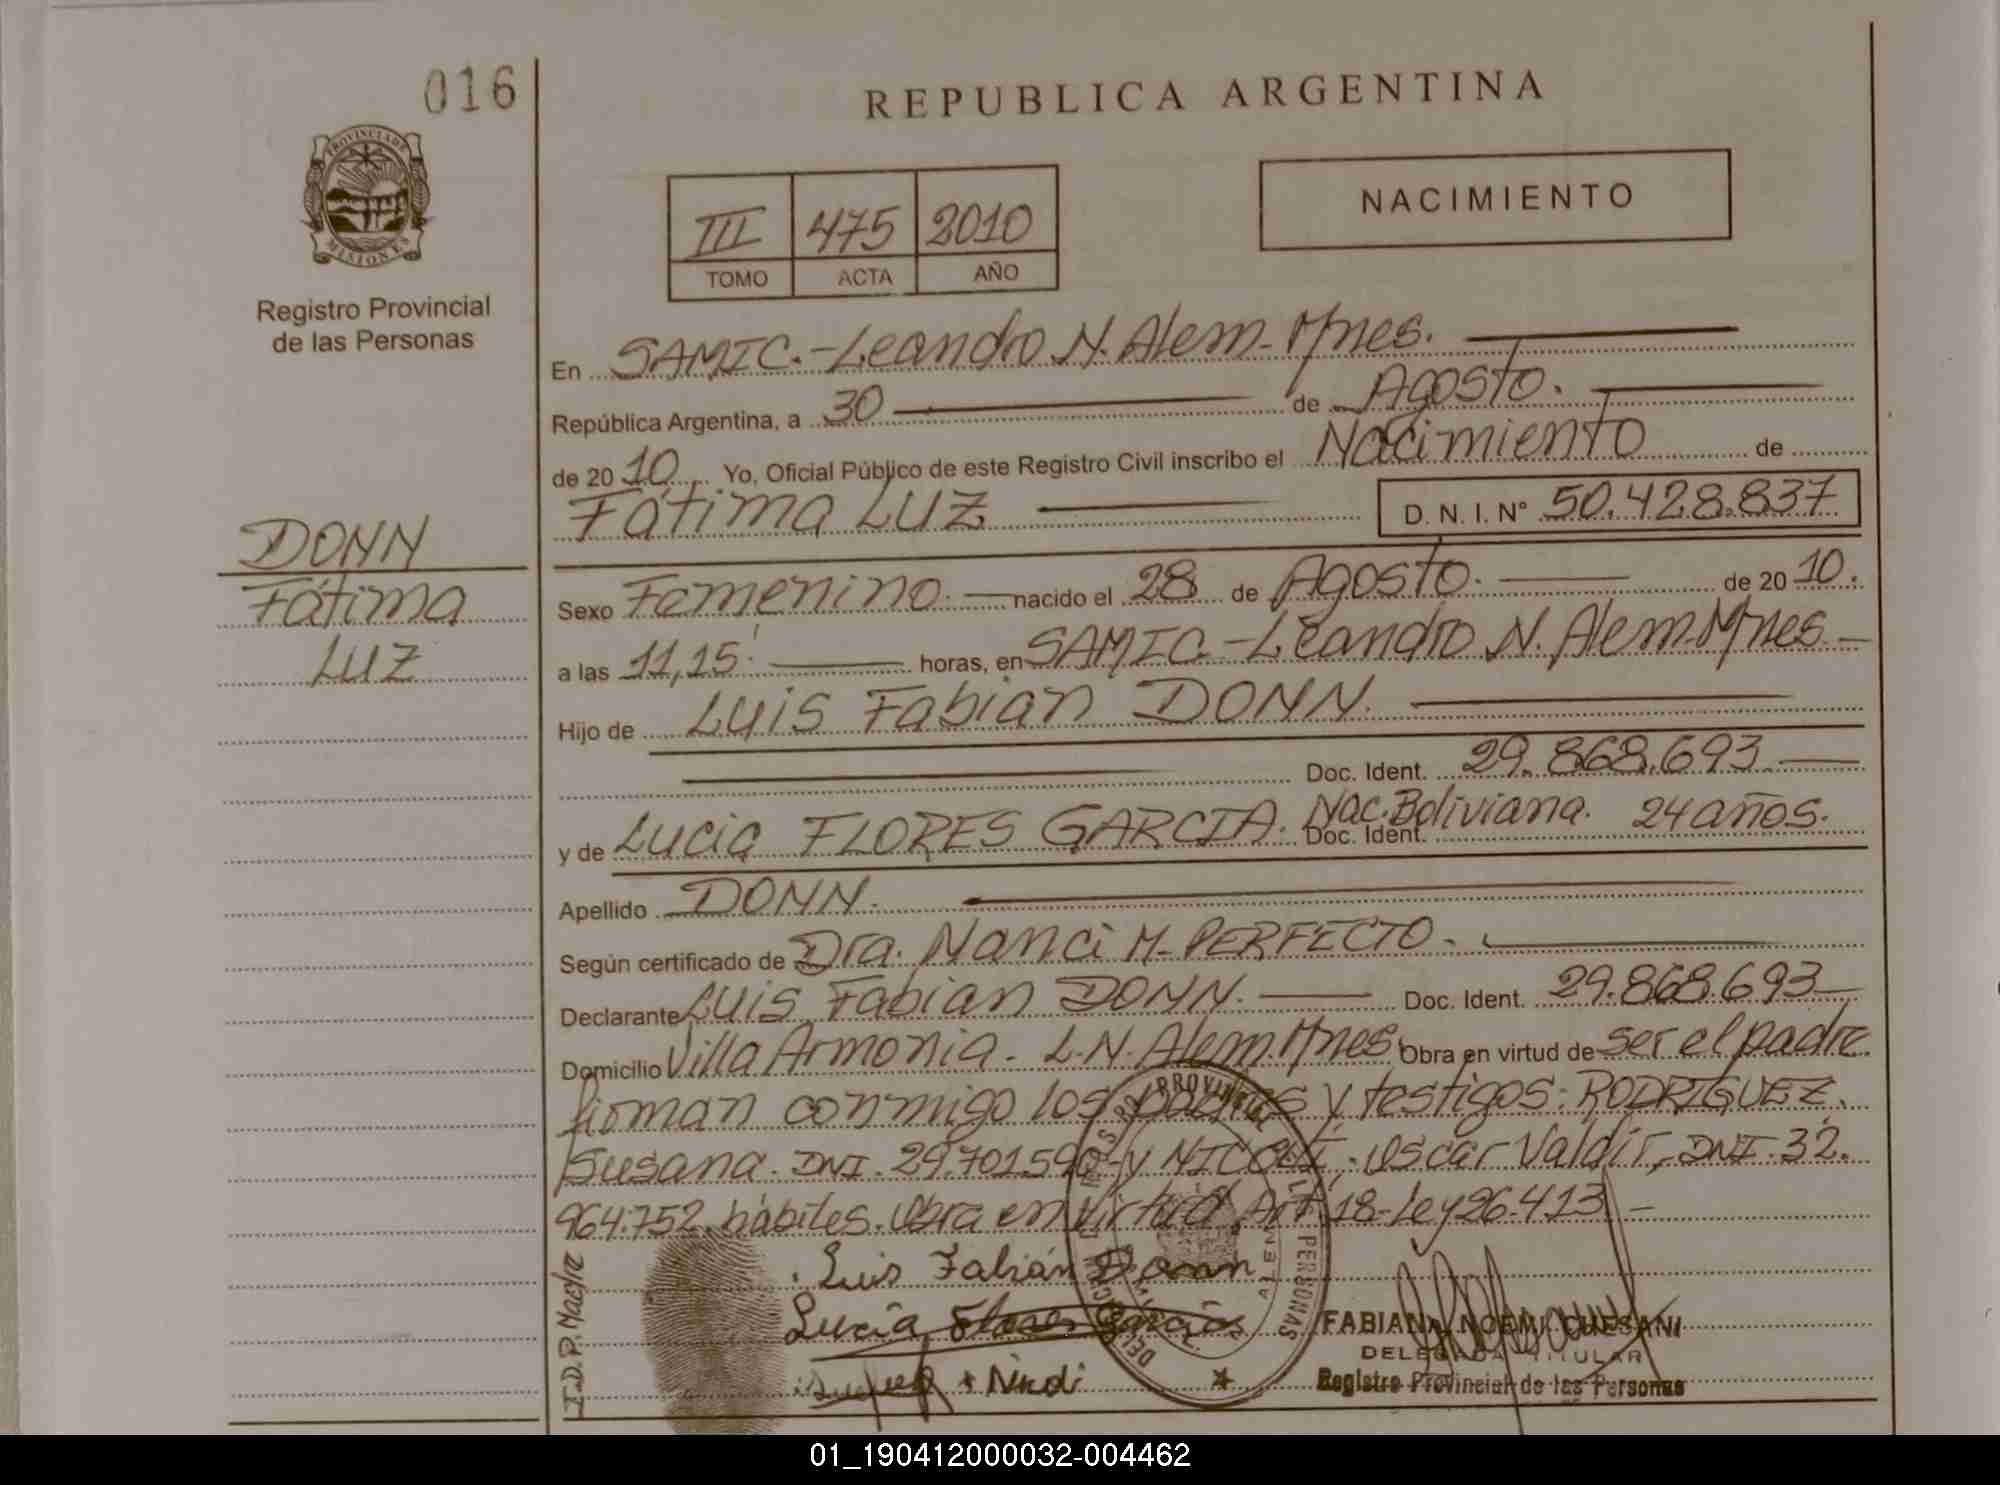 016
PROVINCIA DE
MISIONES
Registro Provincial
de las Personas
DONN
Fátima
Luz
REPUBLICA ARGENTINA
III 475 2010
TOMO ACTA AÑO
NACIMIENTO
En SAMIC.-Leandro N. Alem-Mnes.
República Argentina, a 30 de Agosto.
de 2010 Yo, Oficial Público de este Registro Civil inscribo el Nacimiento de
Fátima Luz D. N. I. N° 50.428.837
Sexo Femenino. nacido el 28 de Agosto. de 2010.
a las 11,15. horas, en SAMIC-Leandro N. Alem-Mnes
Hijo de Luis Fabian DONN.
Doc. Ident. 29.868.693
y de Lucia FLORES GARCIA. Doc. Ident. Nac. Boliviana. 24 años.
Apellido DONN.
Según certificado de Dra. Nanci M. PERFECTO.
Declarante Luis Fabian DONN. Doc. Ident. 29.868.693
Domicilio Villa Armonia. L.N. Alem. Mnes. Obra en virtud de ser el padre.
firman conmigo los padres y testigos: RODRIGUEZ,
Susana. DNI. 29.701.590-y NICOLI, Oscar Valdir, DNI. 32.
964.752. hábiles. Obra en virtud Art. 18-Ley 26.413
Luis Fabián Donn
Lucía Flores Garcia
Nicoli
I.D.P. Mae/12
FABIANA NOEMI CUESANI
DELEGADA TITULAR
Registro Provincial de las Personas
01_190412000032-004462